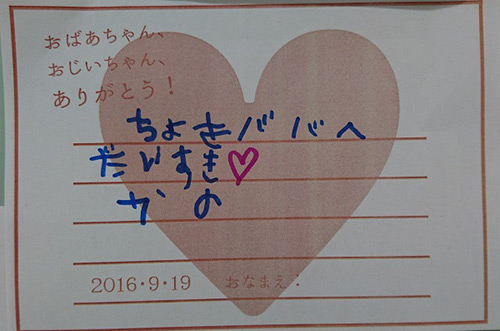 おばあちゃん、
おじいちゃん、
ありがとう!
ちよきババへ
だいすき♡
かの
2016・9・19 おなまえ: